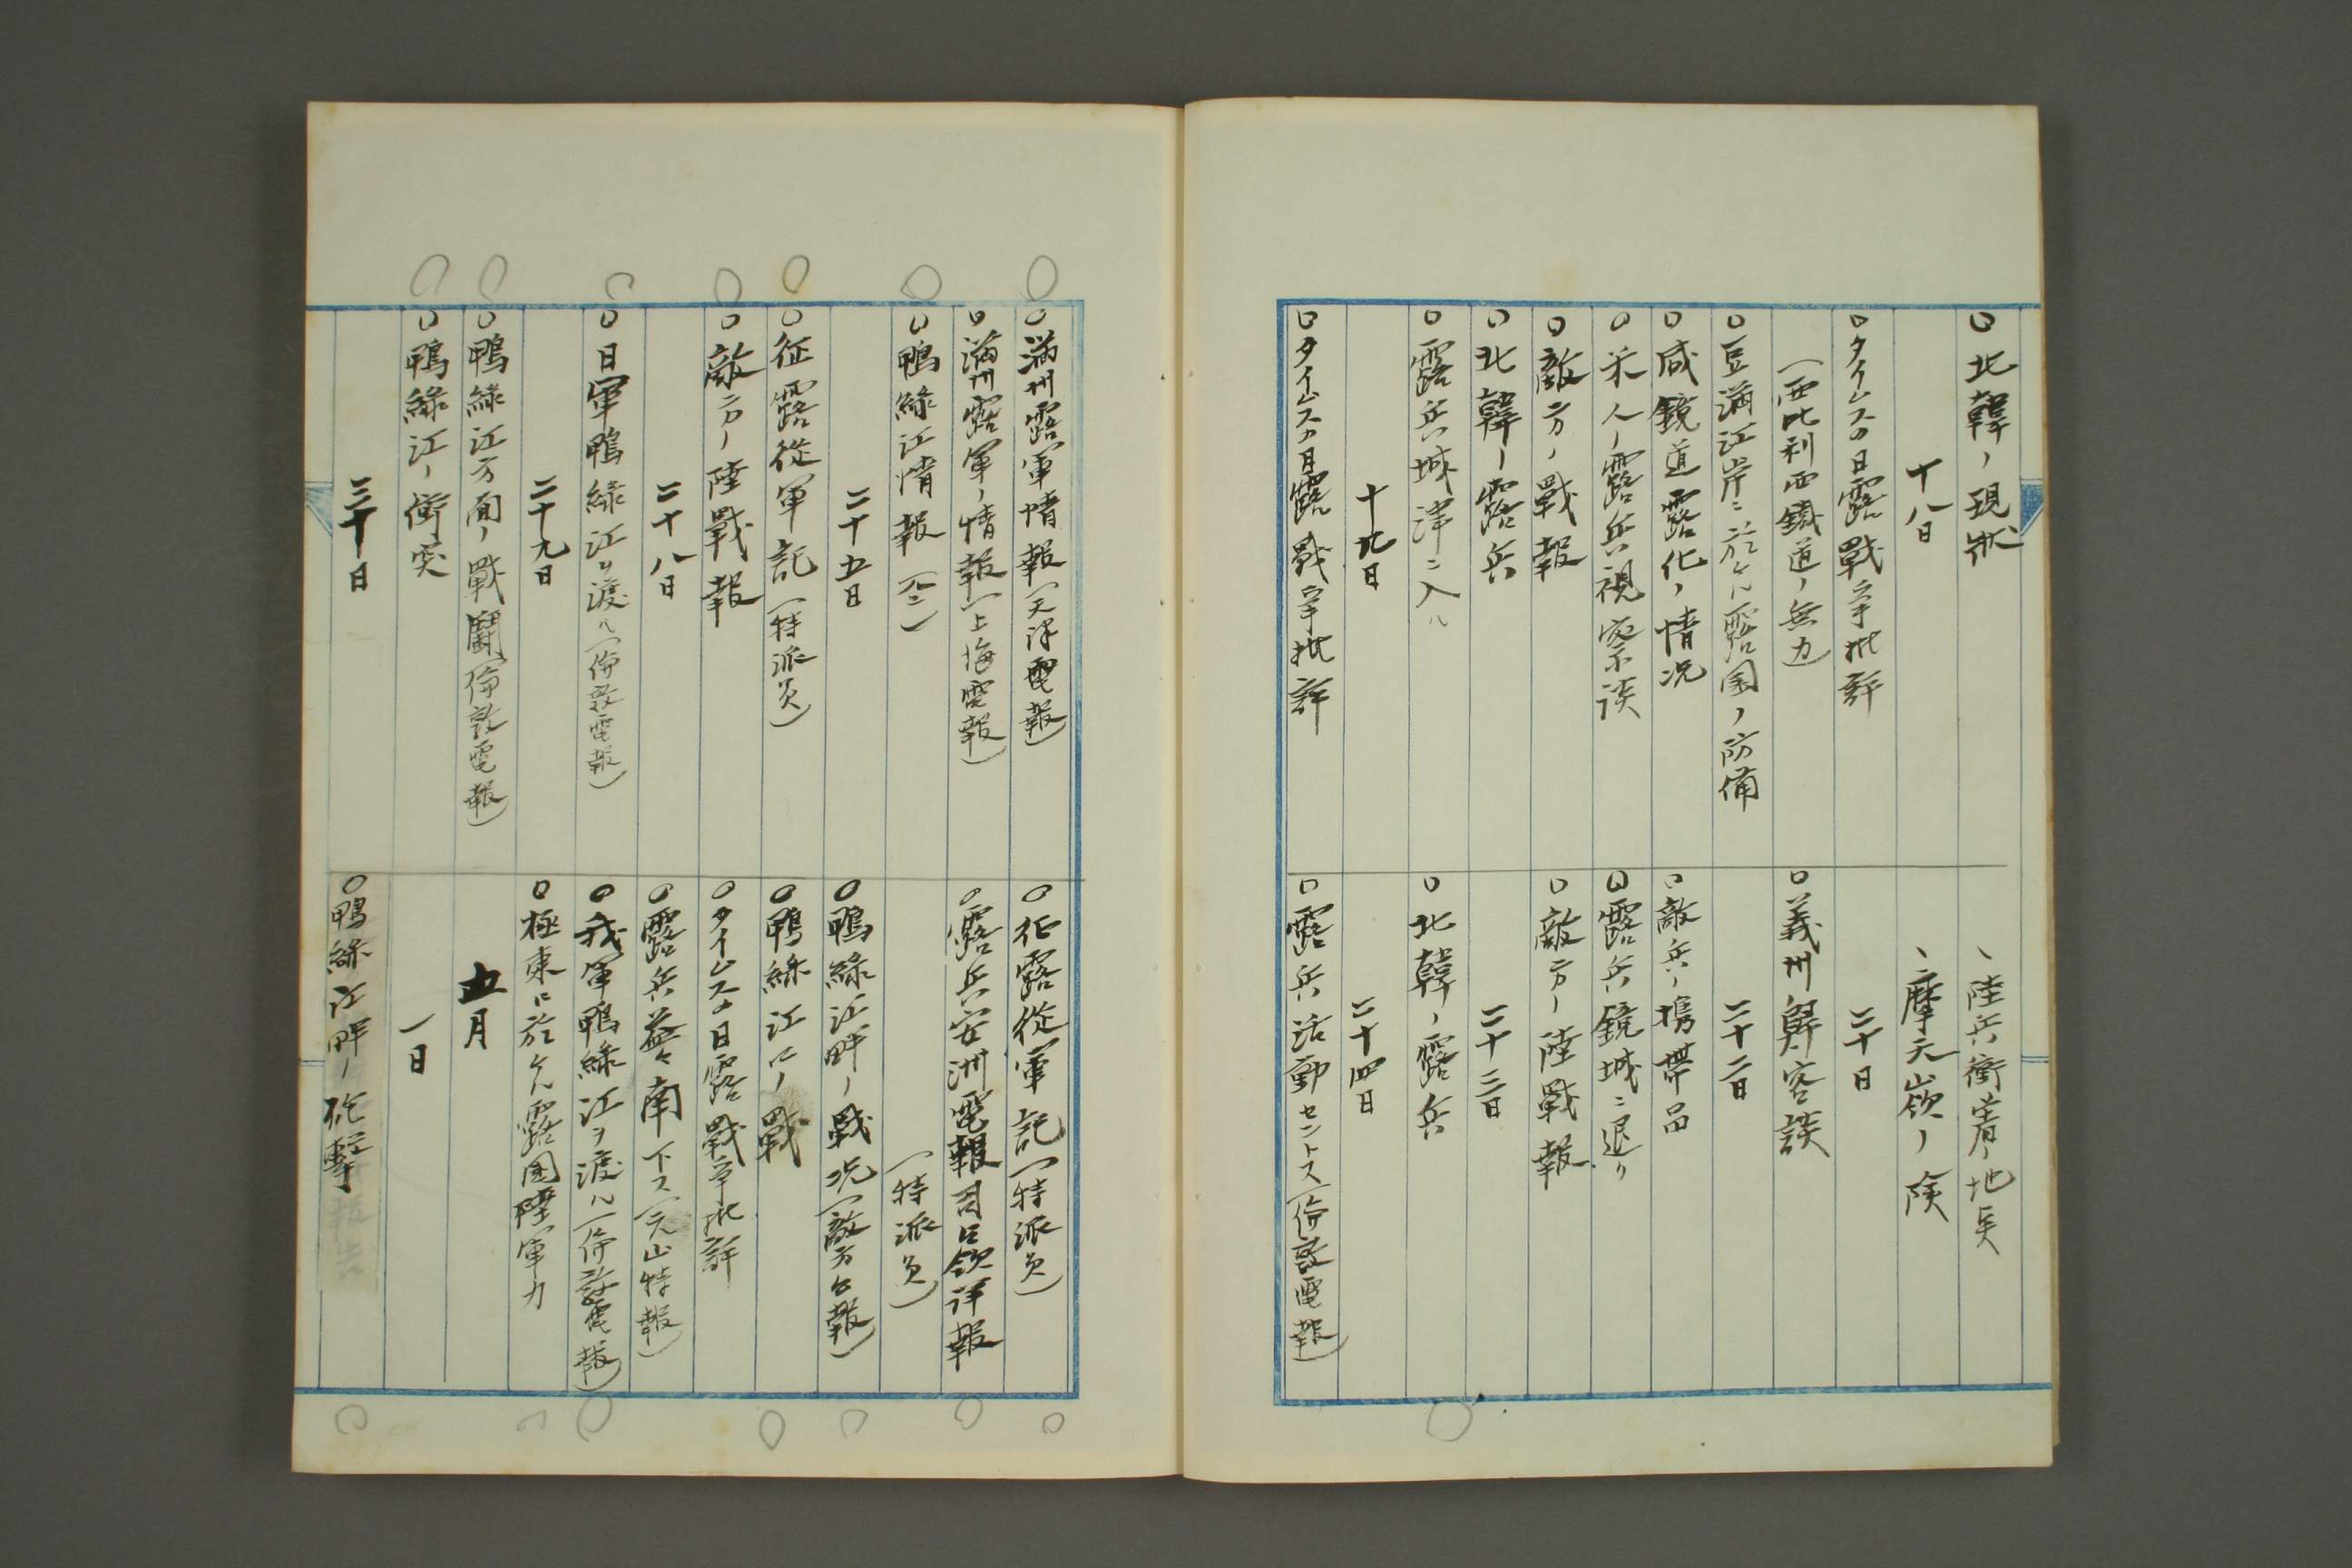 ○北韓ノ現状
十八日
○タイムスノ日露戰爭批評
(西比利亜鐵道ノ無力)
○豆満江岸ニ於ケル露国ノ防備
○咸鏡道露化ノ情况
○米人ノ露兵視察談
○敵方ノ戰報
○北韓ノ露兵
○露兵城津ニ入ル
十九日
○タイムスノ日露戰爭批評
、陸兵衝着ノ地点
、摩天嶺ノ険
二十日
○義州歸客談
二十二日
○敵兵ノ携帯品
○露兵鏡城ニ退ク
○敵方ノ陸戰報
二十三日
○北韓ノ露兵
二十四日
○露兵活動セントス(倫敦電報)
○満州露軍情報(天津電報)
○満州露軍ノ情報(上海電報)
○鴨綠江情報(仝上)
二十五日
○征露從軍記(特派員)
○敵方ノ陸戰報
二十八日
○日軍鴨綠江ヲ渡ル(倫敦電報)
二十九日
○鴨綠江方面ノ戰鬪(倫敦電報)
○鴨綠江ノ衝突
三十日
○征露從軍記(特派員)
○露兵安洲電報司令占領詳報
(特派員)
○鴨綠江畔ノ戰况(敵方公報)
○鴨綠江口ノ戰
○タイムスノ日露戰爭批評
○露兵益々南下ス(元山特報)
○我軍鴨綠江ヲ渡ル(倫敦電報)
○極東ニ於ケル露国陸軍力
五月
一日
○鴨綠江畔ノ砲擊